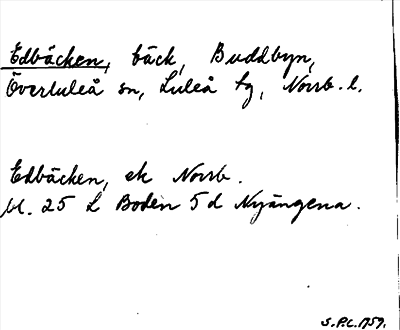 Edbäcken, bäck, Buddbyn,
Överluleå sn, Luleå tg, Norrb. l.
Edbäcken, ek Norrb.
bl. 25 L Boden 5 d Nyängena.
S.P.C. 1759.